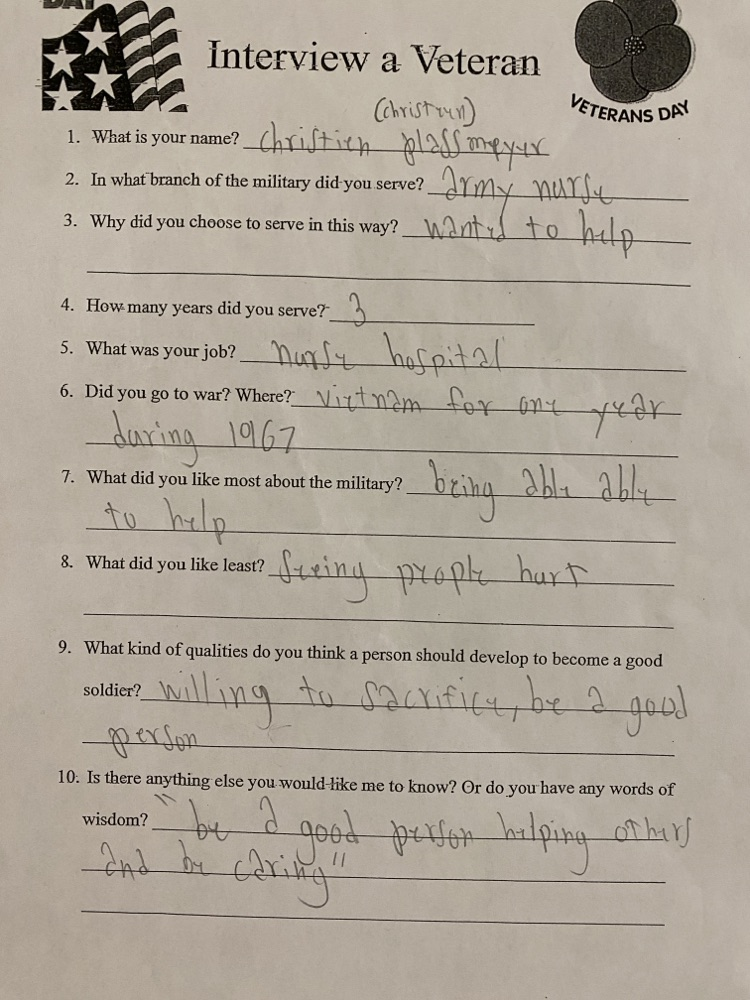 DAY
Interview a Veteran
VETERANS DAY
(christren)
1. What is your name? christien plassmeyer
2. In what branch of the military did you serve? army nurse
3. Why did you choose to serve in this way? wanted to help
4. How many years did you serve? 3
5. What was your job? nurse hospital
6. Did you go to war? Where? vietnam for one year
during 1967
7. What did you like most about the military? being able able
to help
8. What did you like least? Seeing people hurt
9. What kind of qualities do you think a person should develop to become a good
soldier? willing to sacrifice, be a good
person
10. Is there anything else you would like me to know? Or do you have any words of
wisdom? "be a good person helping others
and be caring"